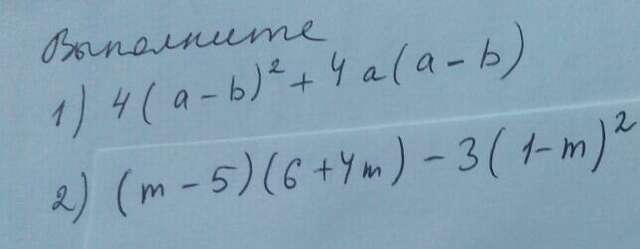 Выполните
1) 4(a-b)² + 4a(a-b)
2) (m-5)(6+4m) - 3(1-m)²